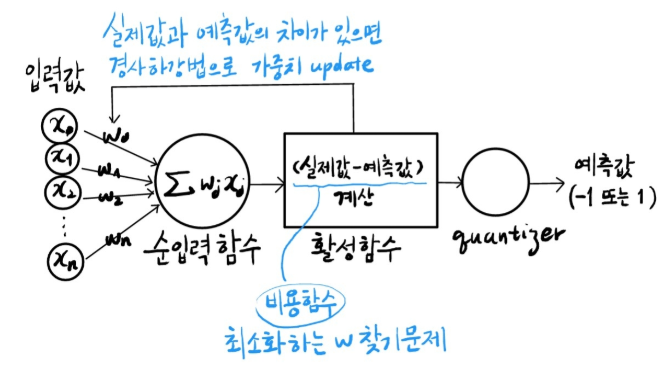 실제값과 예측값의 차이가 있으면
경사하강법으로 가중치 update
입력값
x₀
x₁
x₂
⋮
xₙ
w₀
w₁
w₂
wₙ
∑ wⱼxⱼ
순입력 함수
(실제값-예측값)
계산
활성함수
quantizer
예측값
(-1 또는 1)
비용함수
최소화하는 w 찾기문제